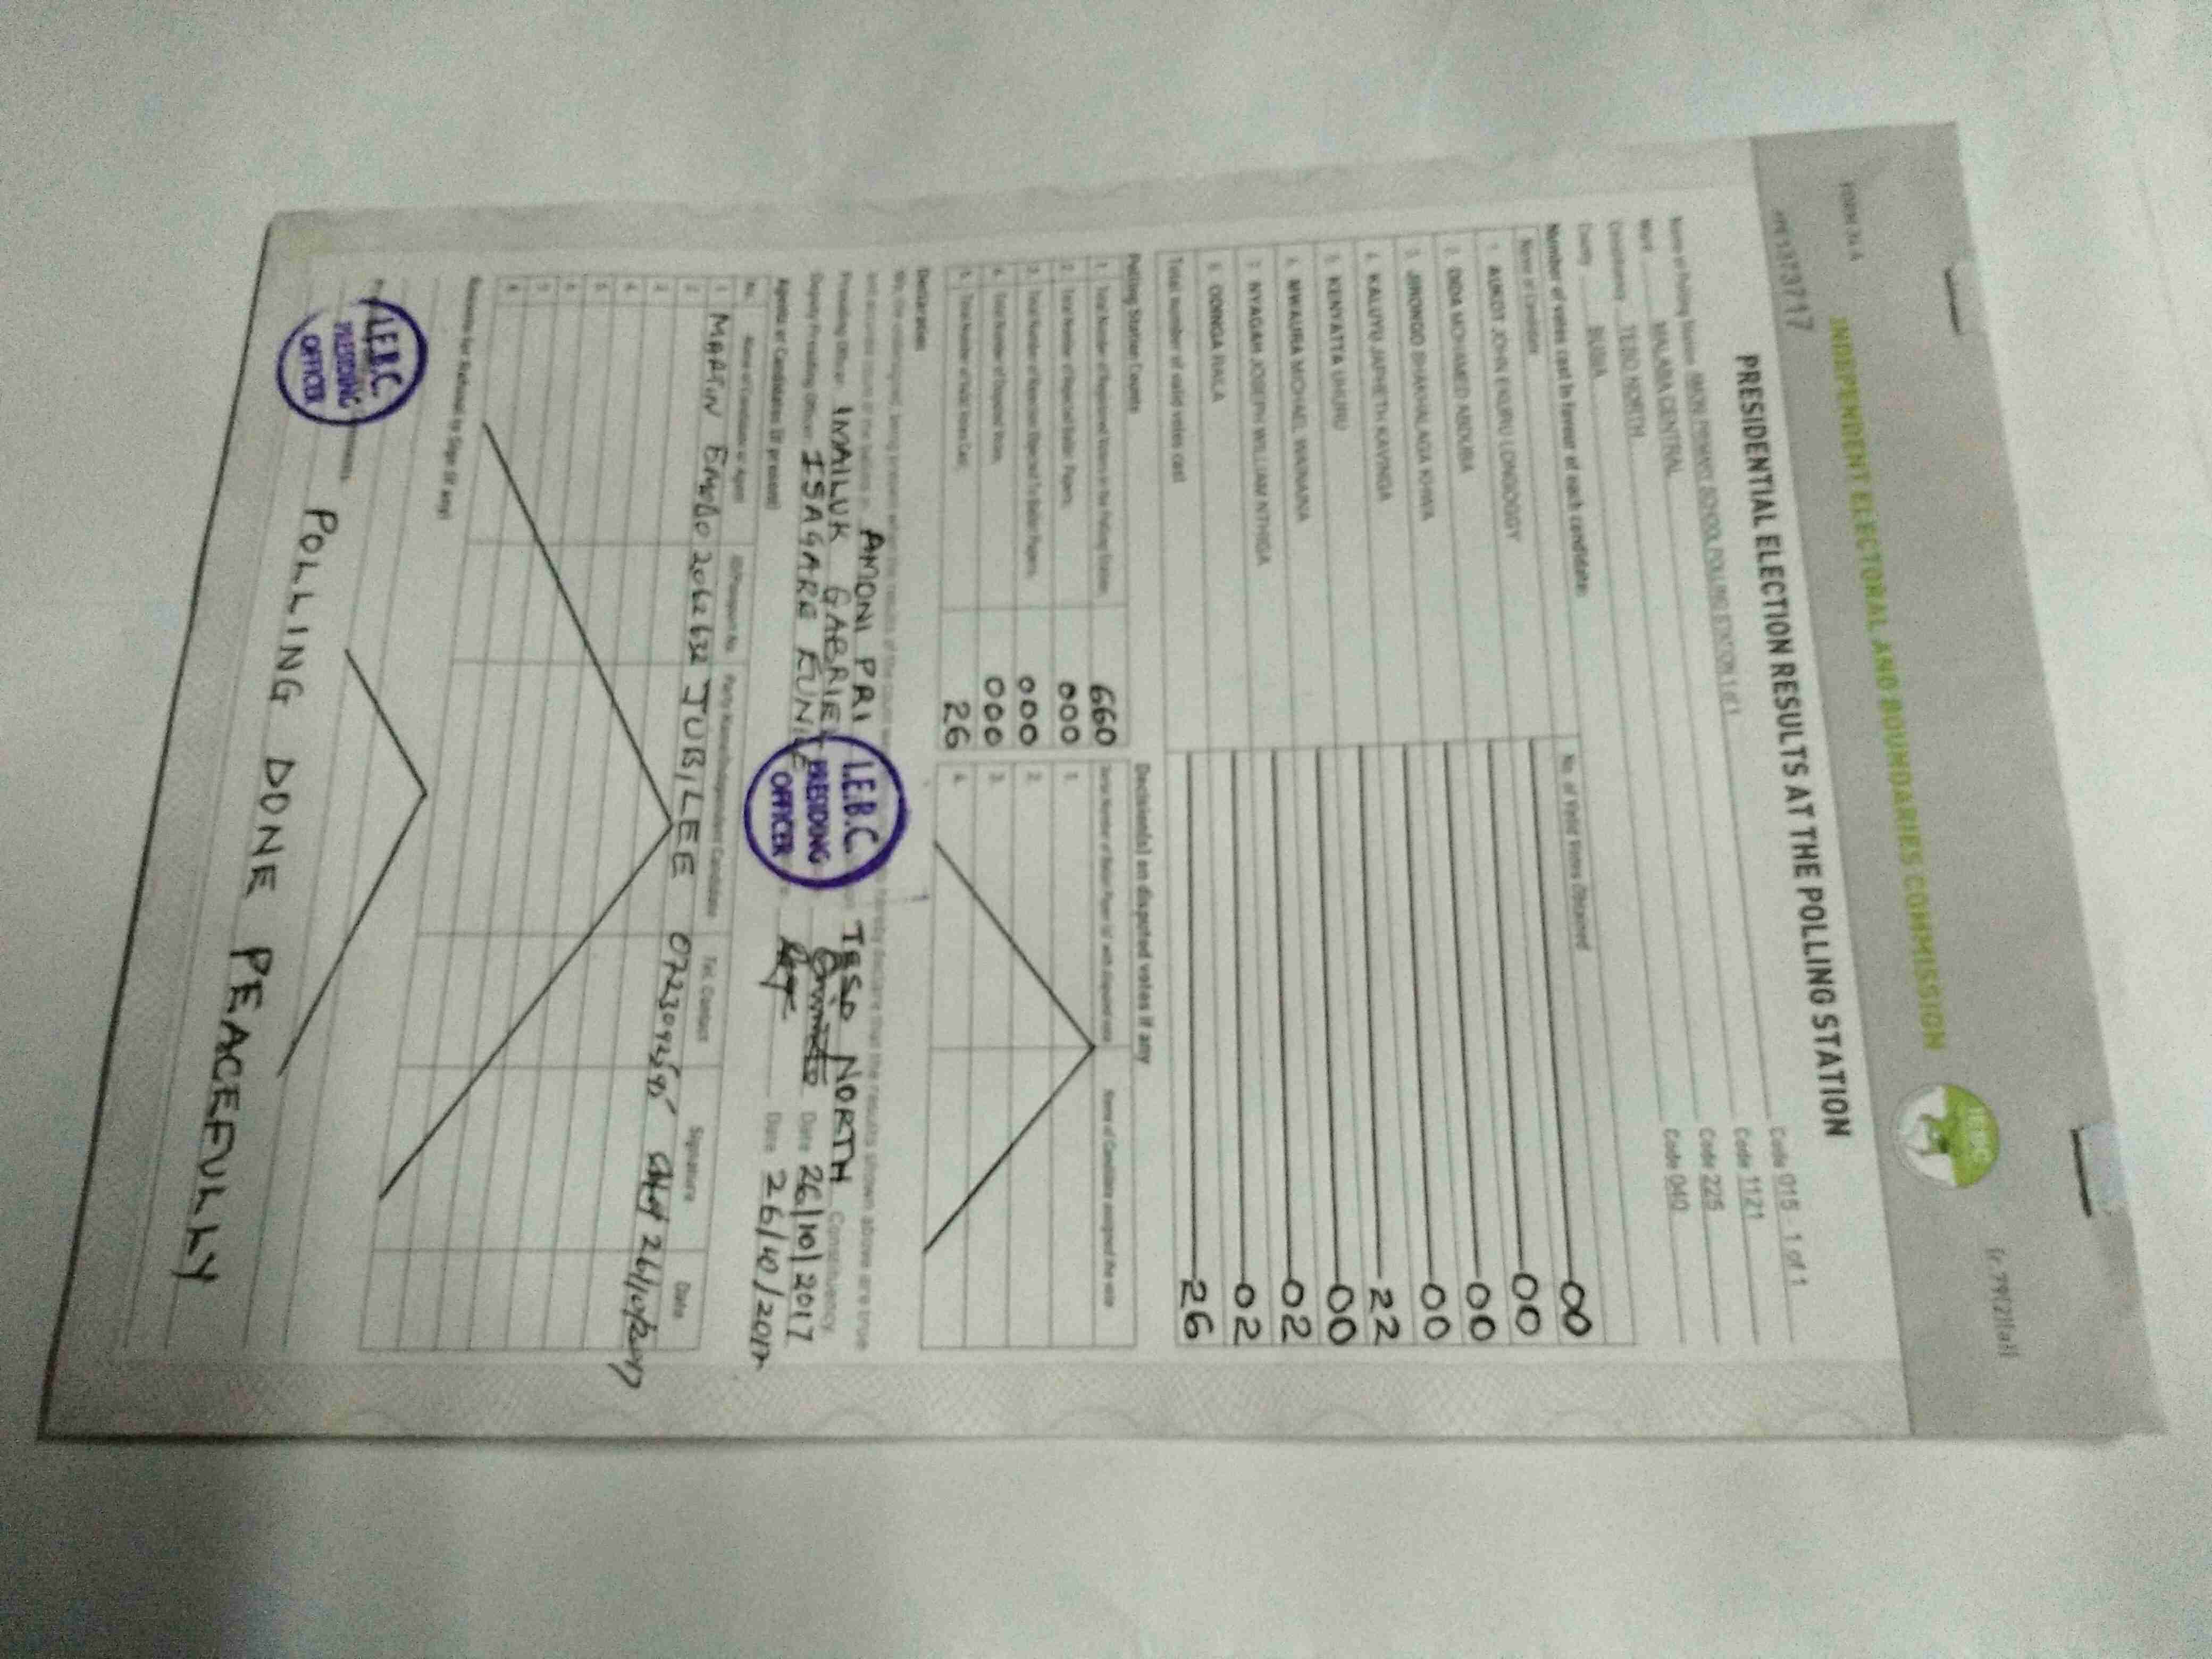 Fr 79(2)(a)
FORM 34 A
INDEPENDENT ELECTORAL AND BOUNDARIES COMMISSION
PRESIDENTIAL ELECTION RESULTS AT THE POLLING STATION
Name of Polling Station PRIMARY SCHOOL POLLING STATION 1 of 1 Code 015 1 of 1
Ward MALABA CENTRAL Code 1121
Constituency TESO NORTH Code 225
County BUSIA Code 040
Number of votes cast in favor of each candidate
Name of Candidate No. of Valid Votes Obtained
1. AUKOT JOHN EKURU LONGOGGY 00
2. DIDA MOHAMED ABDUBA 00
3. JIRONGO SHAKHALAGA KHWA 00
4. KALUYU JAPHETH KAVINGA 00
5. KENYATTA UHURU 22
6. MWAURA MICHAEL WAINAINA 00
7. NYAGAH JOSEPH WILLIAM NTHIGA 02
8. ODINGA RAILA 02
Total number of valid votes cast 26
Polling Station Counts
1. Total Number of Registered Voters in the Polling Station 660
2. Total Number of Rejected Ballot Papers 000
3. Total Number of Rejection Objected To Ballot Papers 000
4. Total Number of Disputed Votes 000
5. Total Number of Valid Votes Cast 26
Decision(s) on disputed votes if any
Serial Number of Ballot Paper (s) with disputed vote Name of Candidate assigned the vote
1.
2.
3.
4.
Declaration
We, the undersigned, being present when the results of the count were declare that the results shown above are true
and accurate count of the ballots in AMONI PRI TESO NORTH Constituency
Presiding Officer IMAILUK GABRIEL Date 26/10/2017
Deputy Presiding Officer ISAGARE EUNICE Date 26/10/2017
I.E.B.C.
PRESIDING
OFFICER
Agents or Candidates (if present)
No. Name of Candidate or Agent ID/Passport No. Party Name/Independent Candidate Tel. Contact Signature Date
1 MARTIN 2062632 JUBILEE 26/10/2017
2
3
4
5
6
7
8
Reasons for Refusal to Sign (if any)
I.E.B.C.
PRESIDING
OFFICER
POLLING DONE PEACEFULLY